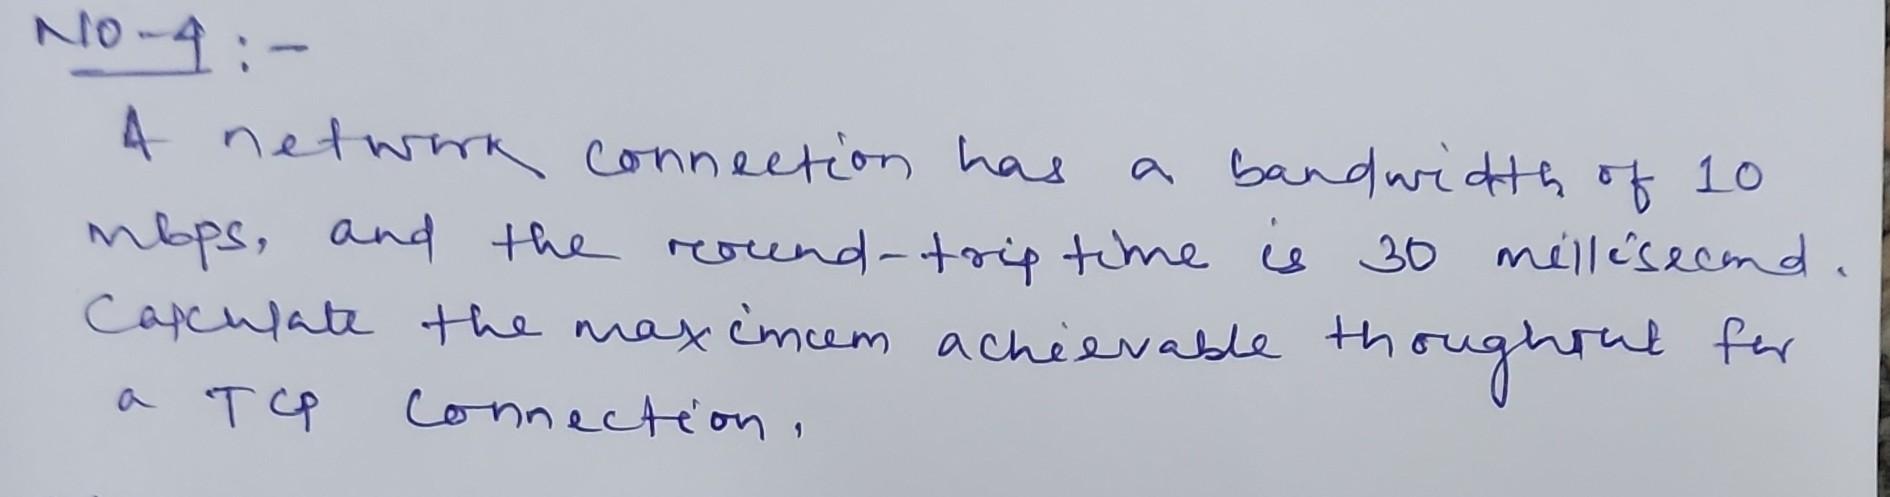 NO-4:-
A network connection has a bandwidth of 10
mbps, and the round-trip time is 30 millisecond.
Calculate the maximum achievable thoughput for
a TCP connection.